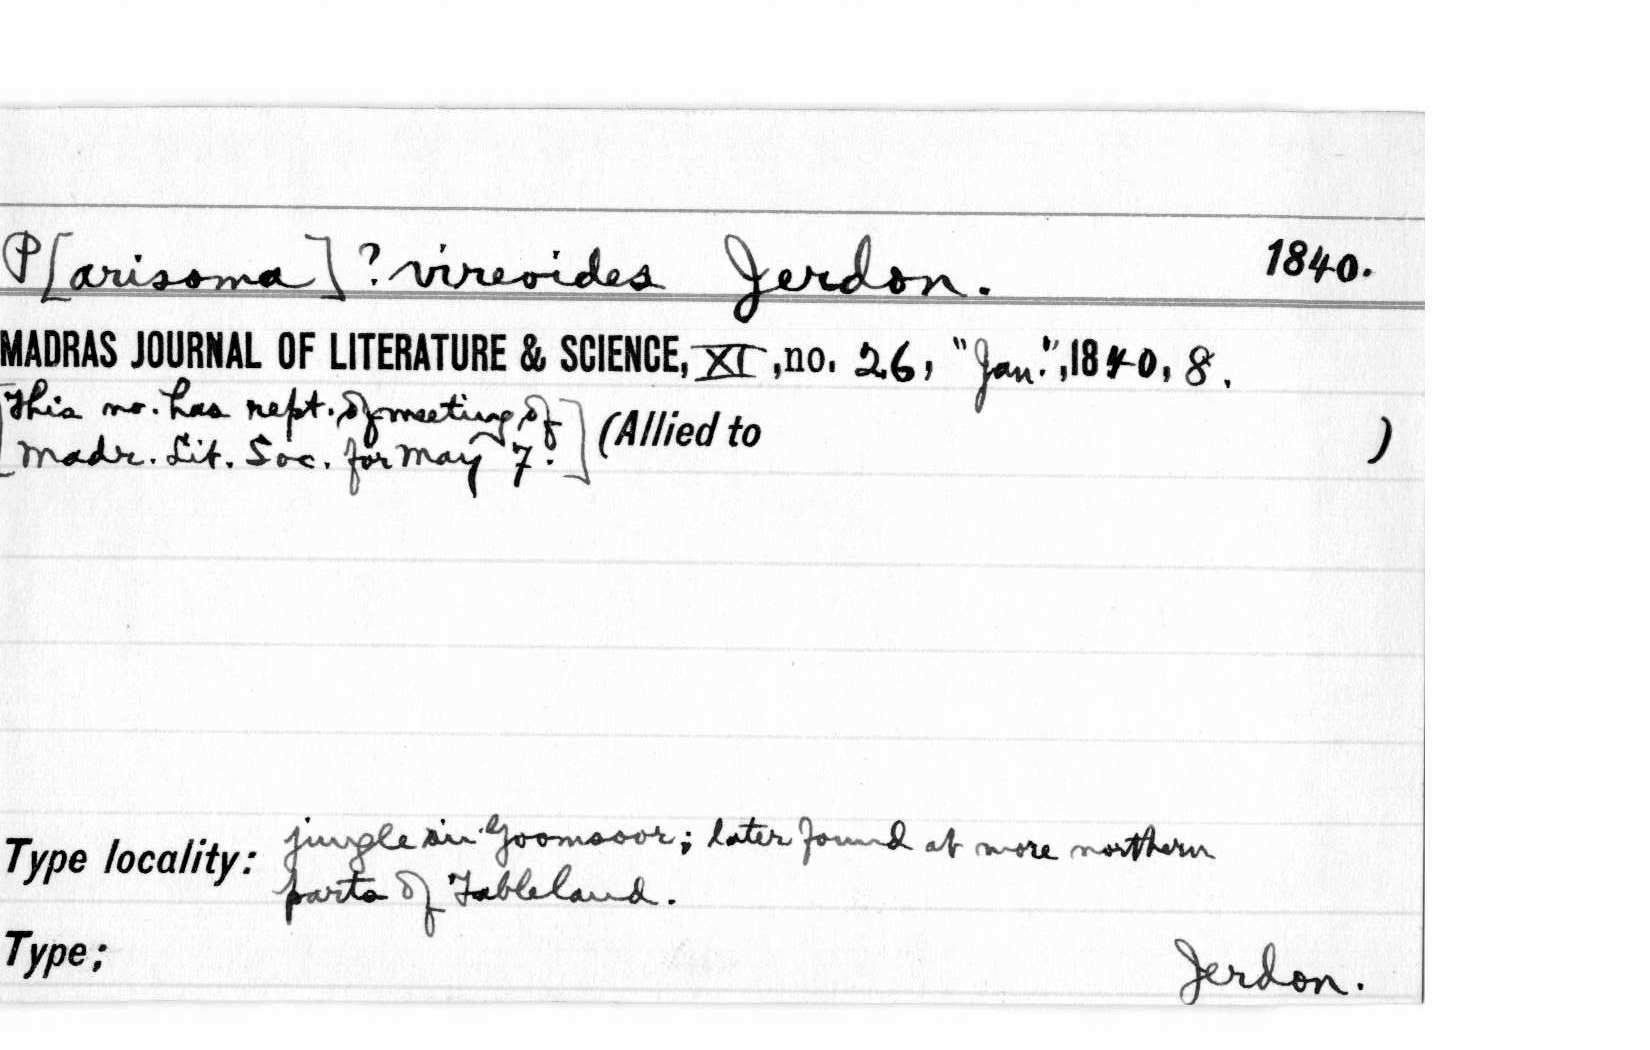 P[arisoma]? vireoides Jerdon. 1840.
MADRAS JOURNAL OF LITERATURE & SCIENCE, XI, no. 26, "Jan.", 1840, 8.
[This no. has rept. of meeting of
Madr. Lit. Soc. for May 7.] (Allied to )
Type locality: jungle in Goomsoor; later found at more northern
parts of Tableland.
Type; Jerdon.